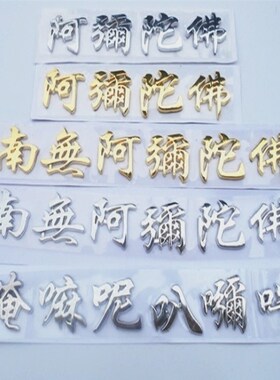 阿彌陀佛
阿彌陀佛
南無阿彌陀佛
南無阿彌陀佛
唵嘛呢叭吽